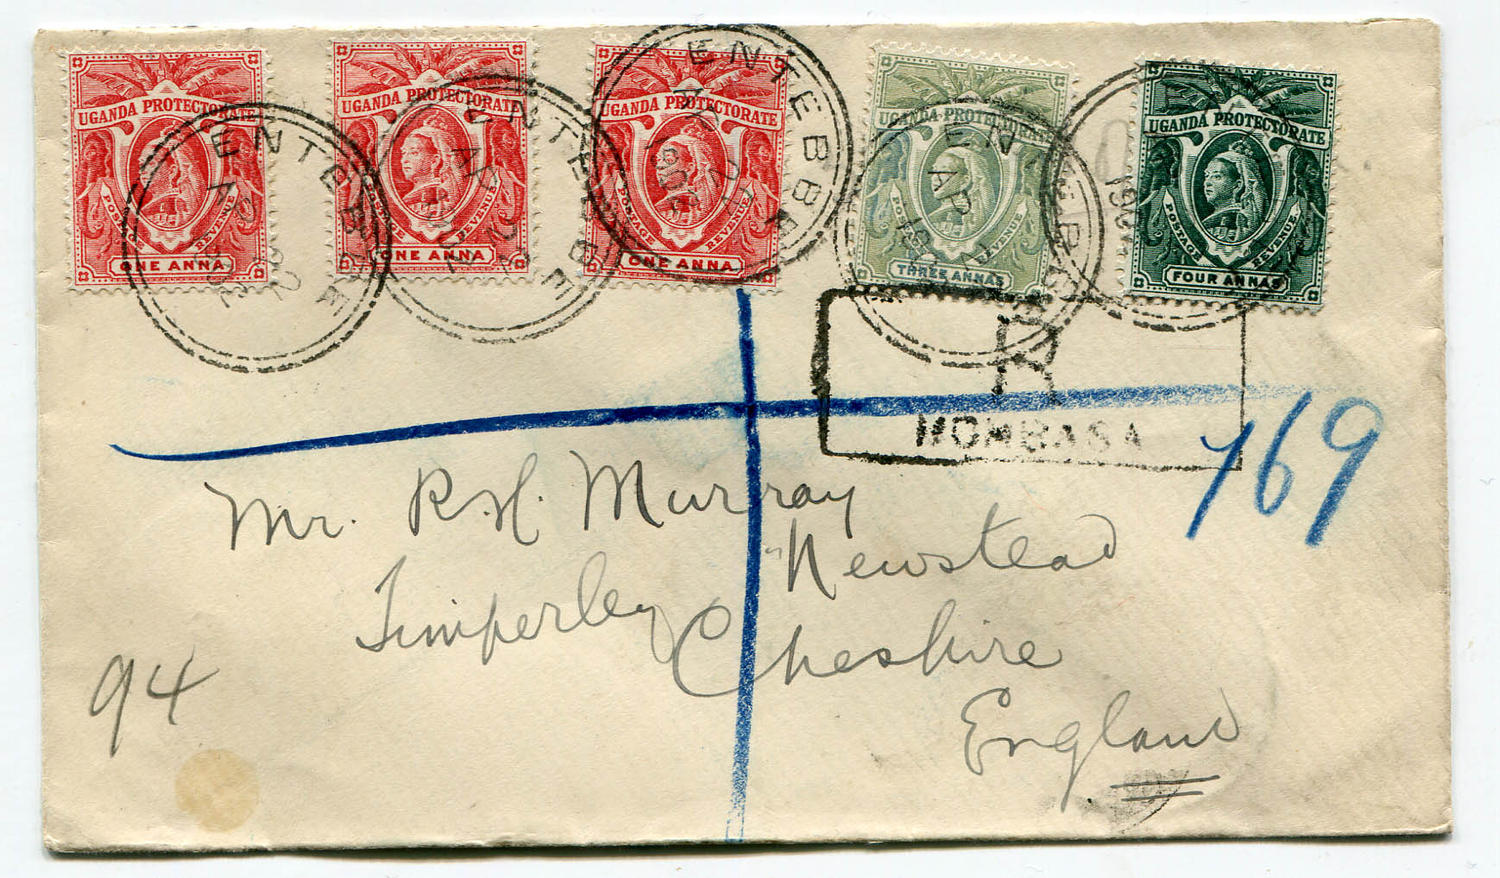 UGANDA PROTECTORATE
POSTAGE REVENUE
ONE ANNA
UGANDA PROTECTORATE
POSTAGE REVENUE
ONE ANNA
UGANDA PROTECTORATE
POSTAGE REVENUE
ONE ANNA
UGANDA PROTECTORATE
POSTAGE REVENUE
THREE ANNAS
UGANDA PROTECTORATE
POSTAGE REVENUE
FOUR ANNAS
ENTEBBE
AP
ENTEBBE
AP
ENTEBBE
1902
ENTEBBE
AP
R
MOMBASA
169
Mr. R.H. Murray
Newstead
Timperley
Cheshire
England
94